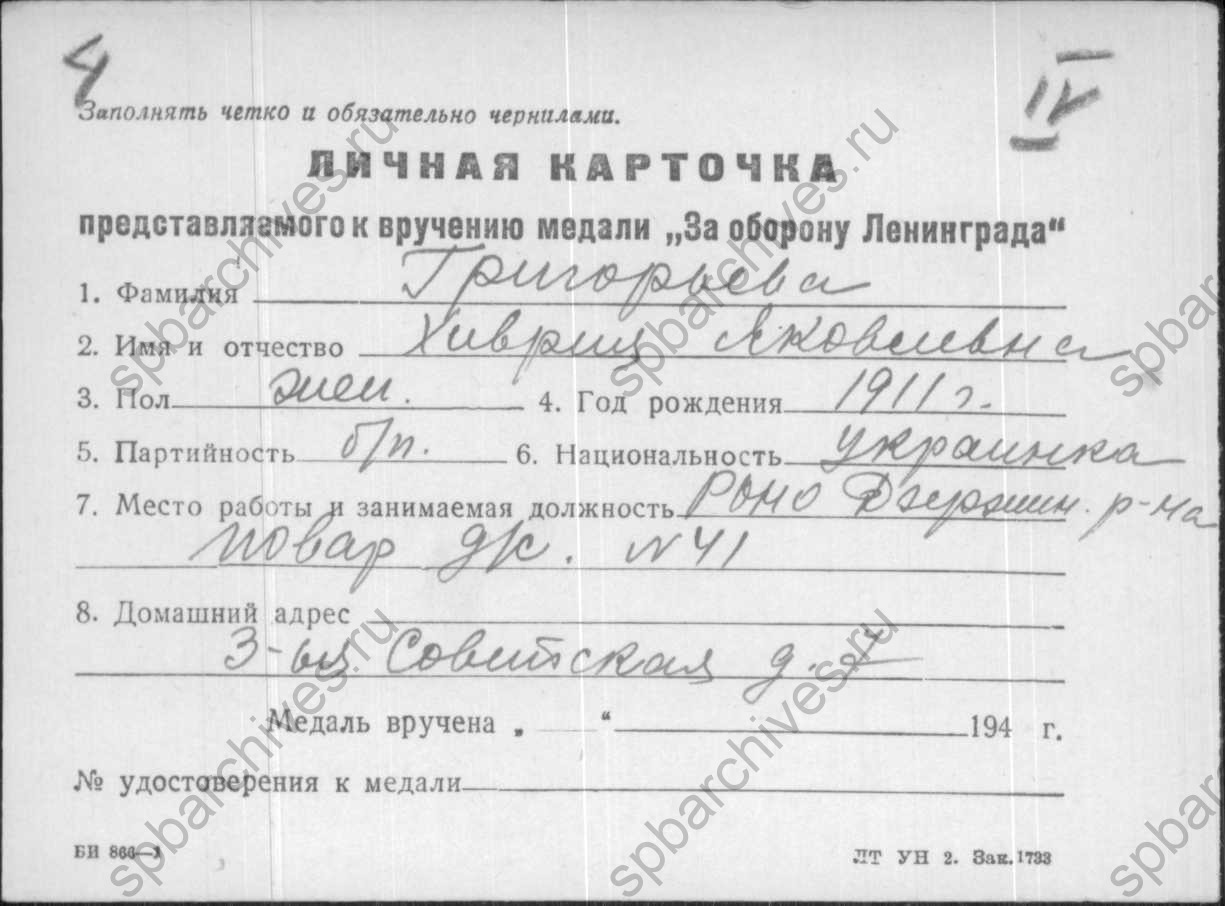 4
IV
Заполнять четко и обязательно чернилами.
ЛИЧНАЯ КАРТОЧКА
представляемого к вручению медали „За оборону Ленинграда“
1. Фамилия Григорьева
2. Имя и отчество Хиврия Яковлевна
3. Пол жен. 4. Год рождения 1911 г.
5. Партийность б/п. 6. Национальность украинка
7. Место работы и занимаемая должность РОНО Дзержин. р-на
повар д/с. N 41
8. Домашний адрес
3-ья Советская д. 7
Медаль вручена „ “ 194 г.
№ удостоверения к медали
БИ 866—1
ЛТ УН 2. Зак. 1733
spbarchives.ru
spbarchives.ru
spbarchives.ru
spbarchives.ru